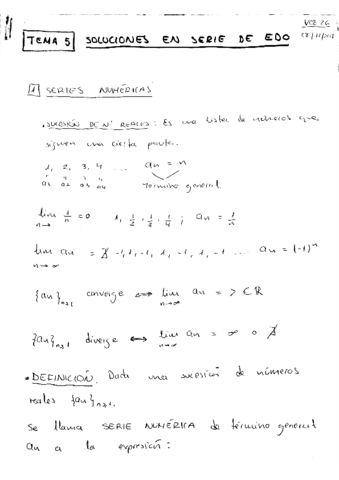 TEMA 5 SOLUCIONES EN SERIE DE EDO
1 SERIES NUMÉRICAS
• SUCESIÓN DE Nº REALES: Es una lista de números que
siguen una cierta pauta.
1, 2, 3, 4 ... an = n
a1 a2 a3 a4 término general
lim 1/n = 0 1, 1/2, 1/3, 1/4; an = 1/n
n→
lim an = ∄ -1, 1, -1, 1, -1, 1, -1 ... an = (-1)^n
n→∞
{an}n≥1 converge ⟺ lim an = > C ℝ
n→∞
{an}n≥1 diverge ⟷ lim an = ∞ o ∄
n→∞
• DEFINICIÓN. Dada una sucesión de números
reales {an}n≥1.
Se llama SERIE NUMÉRICA de término general
an a la expresión: